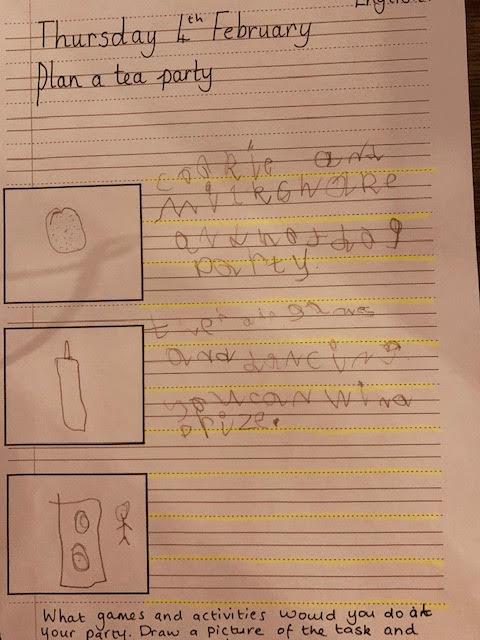 English
Thursday 4th February
Plan a tea party
cookie and
milkshake
and hotdog
party.
and dancing.
you can win a
prize.
What games and activities would you do at
your party. Draw a picture of the task and